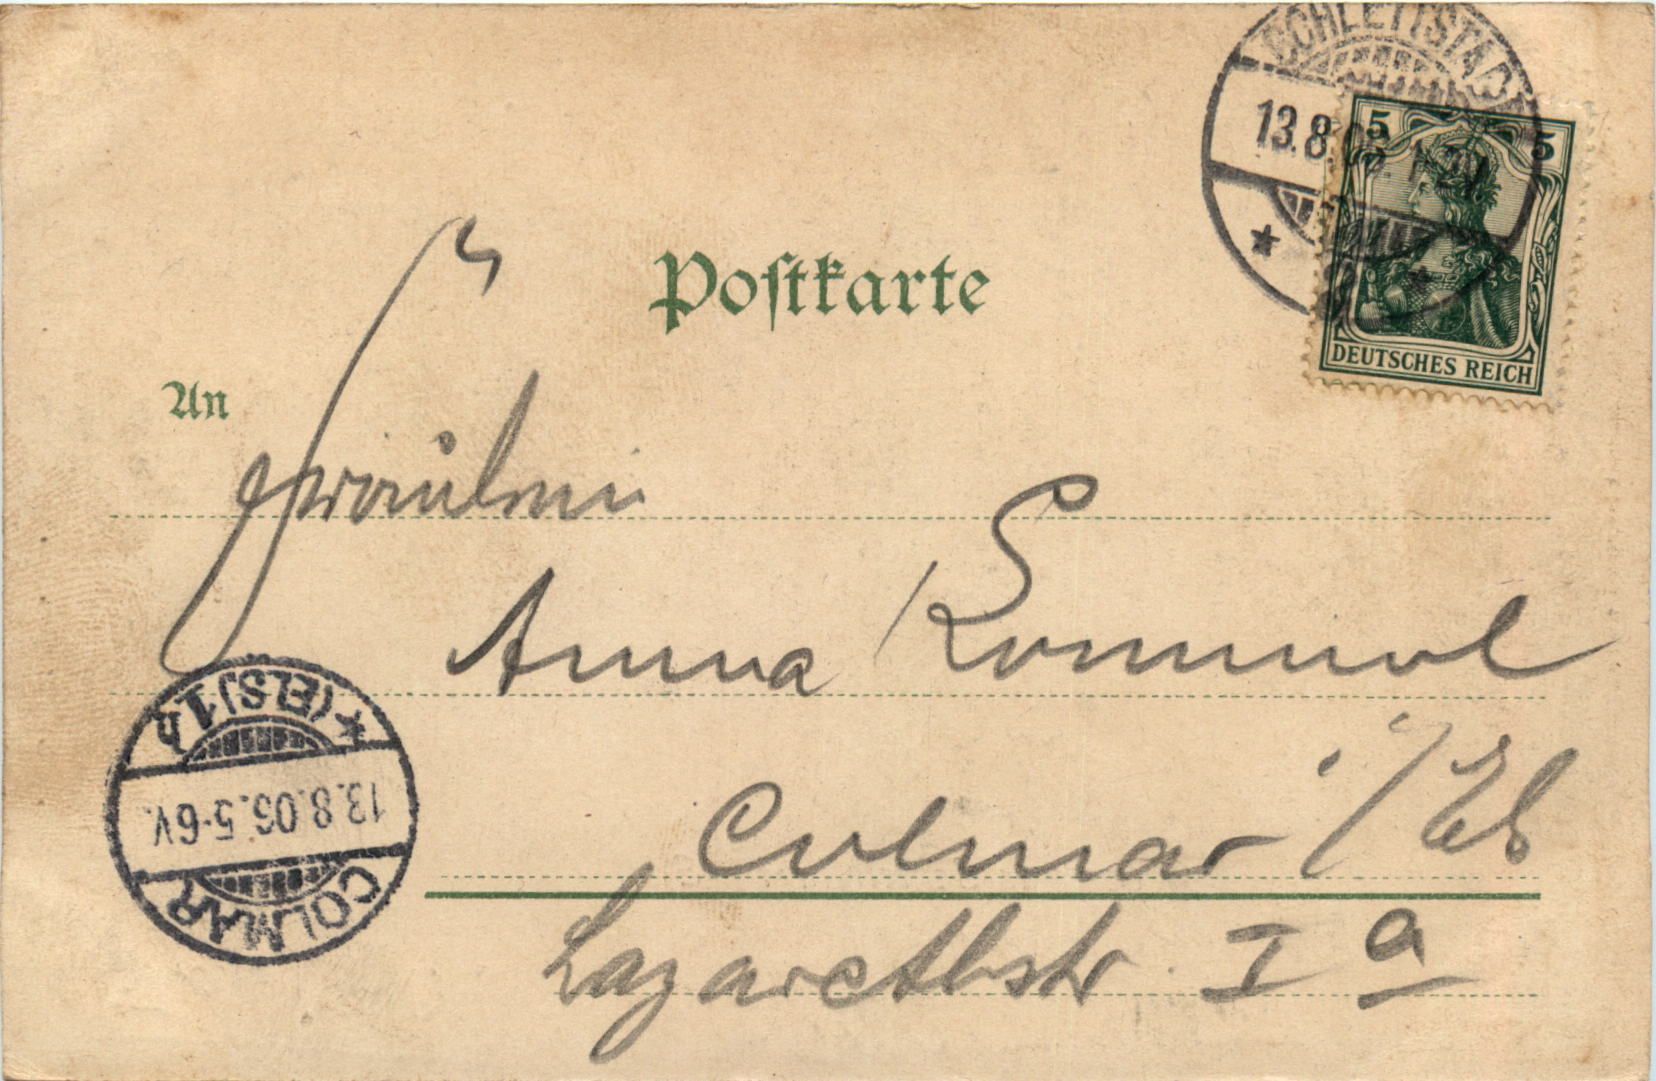 SCHLETTSTADT
13.8.06.
5 5
DEUTSCHES REICH
Postkarte
An
Fräulein
Anna Rommel
Colmar i/Els
Lazarettstr I a
*(ELS)1h
13.8.06.5-6V.
COLMAR